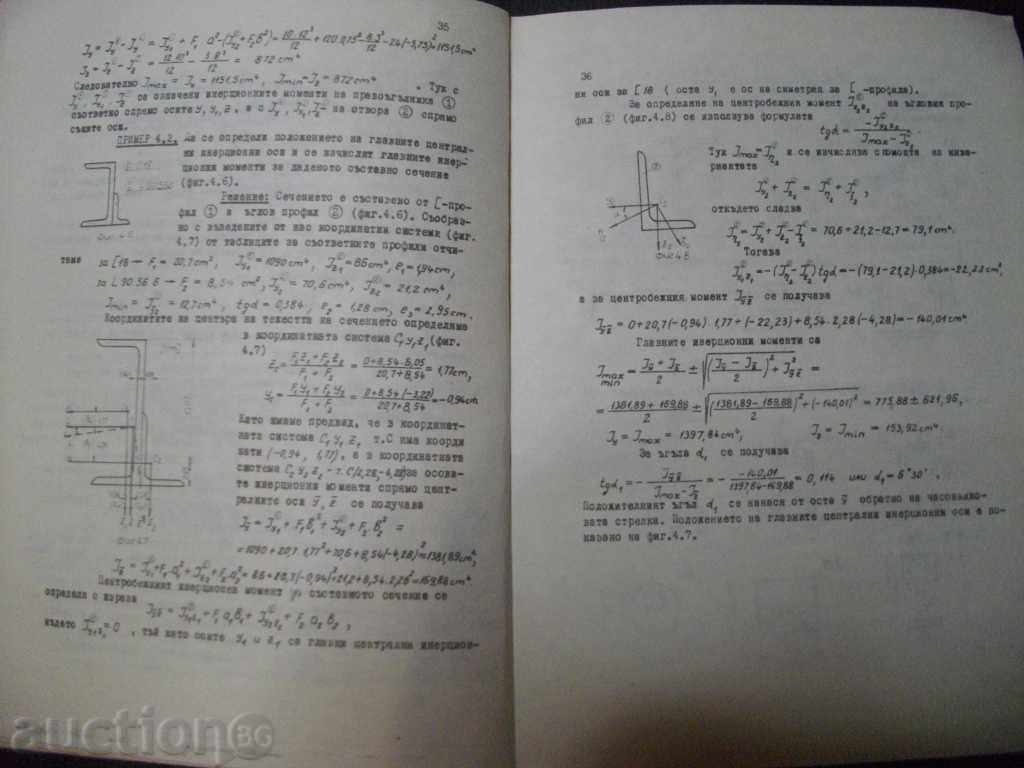 35
J_y = J_y^① - J_y^② = J_{y1}^① + F_1 a^2 - (J_{y2}^② + F_2 b^2) = 10·12³/12 + 120·0,75² - 6·3³/12 - 24(-3,75)² = 1151,5 cm⁴
J_z = J_z^① - J_z^② = 12·10³/12 - 3·8³/12 = 872 cm⁴
Следователно J_max = J_y = 1151,5 cm⁴, J_min = J_z = 872 cm⁴. Тук с
са означени инерционните моменти на правоъгълника ①
съответно спрямо осите y, z, а с на отвора ② спрямо
същите оси.
ПРИМЕР 4.2. Да се определи положението на главните централ-
ни инерционни оси и се изчислят главните инер-
ционни моменти за даденото съставно сечение
(фиг.4.6).
Решение: Сечението е съставено от [-про-
фил ① и ъглов профил ② (фиг.4.6). Съобраз-
но с въведените от нас координатни системи (фиг.
4.7) от таблиците за съответните профили отчи-
таме за [18 → F_1 = 20,7 cm², J_{y1}^① = 1090 cm⁴, J_{z1}^① = 86 cm⁴, e_1 = 1,94 cm,
за L 90.56.6 → F_2 = 8,54 cm², J_{y2}^② = 70,6 cm⁴, J_{z2}^② = 21,2 cm⁴,
J_min = J_{ξ2}^② = 12,7 cm⁴, tgα = 0,384, e_2 = 1,28 cm, e_3 = 2,95 cm.
Координатите на центъра на тежестта на сечението определяме
в координатната система C_1 y_1 z_1 (фиг.
4.7)
z_1 = (F_1 z_1 + F_2 z_2)/(F_1 + F_2) = (0 + 8,54·6,05)/(20,7 + 8,54) = 1,77 cm,
y_1 = (F_1 y_1 + F_2 y_2)/(F_1 + F_2) = (0 + 8,54(-3,22))/(20,7 + 8,54) = -0,94 cm
Като имаме предвид, че в координат-
ната система C_1 y_1 z_1 т.C има коорди
нати (-0,94, 1,77), а в координатната
система C_2 y_2 z_2 - т.C(2,28,-4,28) за осови-
те инерционни моменти спрямо цент-
ралните оси ȳ, z̄ се получава
J_ȳ = J_{y1}^① + F_1 b_1² + J_{y2}^② + F_2 b_2² =
= 1090 + 20,7·1,77² + 70,6 + 8,54(-4,28)² = 1381,89 cm⁴
J_z̄ = J_{z1}^① + F_1 a_1² + J_{z2}^② + F_2 a_2² = 86 + 20,7(-0,94)² + 21,2 + 8,54·2,28² = 169,88 cm⁴
Центробежният инерционен момент на съставното сечение се
определя с израза
J_{ȳz̄} = J_{y1z1}^① + F_1 a_1 b_1 + J_{y2z2}^② + F_2 a_2 b_2,
където J_{y1z1}^① = 0, тъй като осите y_1 и z_1 са главни централни инерцион-
36
ни оси за [18 (оста y_1 е ос на симетрия за [-профила).
За определяне на центробежния момент J_{y2z2}^② на ъгловия про-
фил ② (фиг.4.8) се използува формулата
tgα = -J_{y2z2}^②/(J_max - J_{z2}^②).
Тук J_max = J_{η2}^② и се изчислява с помощта на инва-
риантата
J_{y2}^② + J_{z2}^② = J_{η2}^② + J_{ξ2}^②,
откъдето следва
J_{η2}^② = J_{y2}^② + J_{z2}^② - J_{ξ2}^② = 70,6 + 21,2 - 12,7 = 79,1 cm⁴.
фиг.4.8
Тогава
J_{y2z2}^② = -(J_{η2}^② - J_{z2}^②) tgα = -(79,1 - 21,2)·0,384 = -22,23 cm⁴,
а за центробежния момент J_{ȳz̄} се получава
J_{ȳz̄} = 0 + 20,7(-0,94)·1,77 + (-22,23) + 8,54·2,28(-4,28) = -140,01 cm⁴
Главните инерционни моменти са
J_max/min = (J_ȳ + J_z̄)/2 ± √(((J_ȳ - J_z̄)/2)² + J_{ȳz̄}²) =
= (1381,89 + 169,88)/2 ± √(((1381,89 - 169,88)/2)² + (-140,01)²) = 775,88 ± 621,96,
J_1 = J_max = 1397,84 cm⁴, J_2 = J_min = 153,92 cm⁴.
За ъгъла α_1 се получава
tgα_1 = -J_{ȳz̄}/(J_max - J_z̄) = -(-140,01)/(1397,84 - 169,88) = 0,114 или α_1 = 6°30'.
Положителният ъгъл α_1 се нанася от оста ȳ обратно на часовнико-
вата стрелка. Положението на главните централни инерционни оси е по-
казано на фиг.4.7.
auction BG